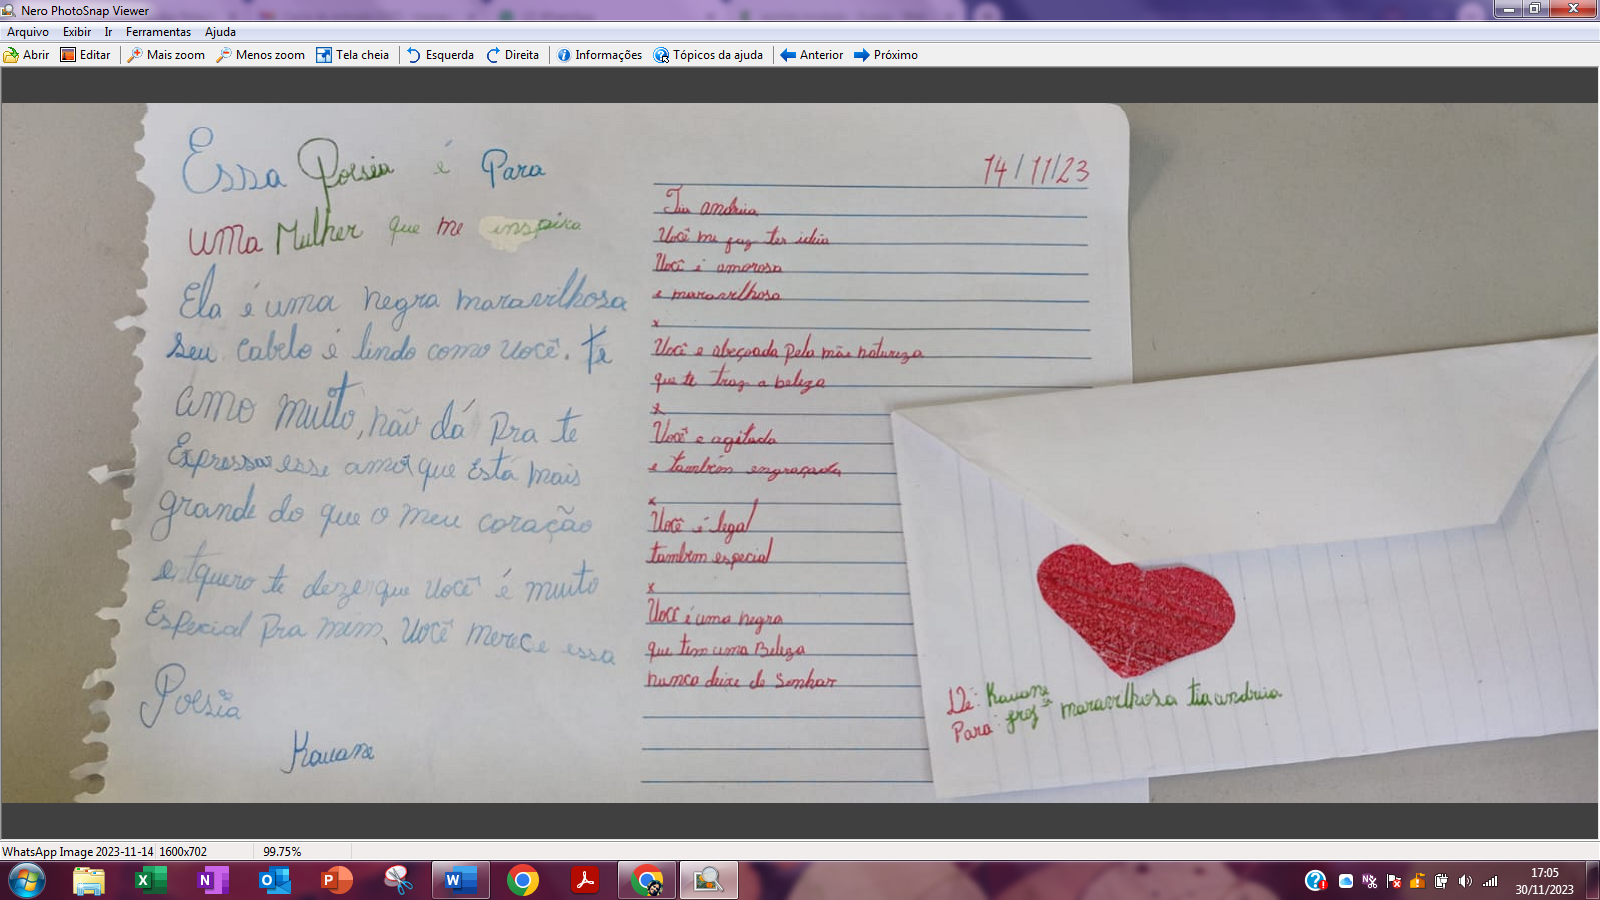 Nero PhotoSnap Viewer
Arquivo Exibir Ir Ferramentas Ajuda
Abrir Editar Mais zoom Menos zoom Tela cheia Esquerda Direita Informações Tópicos da ajuda Anterior Próximo
Essa Poesia é Para
uma Mulher que me inspira
Ela é uma negra maravilhosa
seu cabelo é lindo como você. Te
amo muito, não dá pra te
Expressar esse amor que Está mais
grande do que o meu coração
entquero te dezer que você é muito
Especial pra mim, você merece essa
Poesia
Kauane
14/11/23
Tia andreia
Você me faz ter ideia
Você é amorosa
e maravilhosa
x
Você e abeçoada pela mãe natureza
que te traz a beleza
x
Você e agitada
e também engraçada
x
Você é legal
tambem especial
x
Você é uma negra
que tem uma Beleza
nunca deixe de Sonhar
De: Kauane
Para: prof maravilhosa tia andreia
WhatsApp Image 2023-11-14 1600x702 99.75%
17:05
30/11/2023